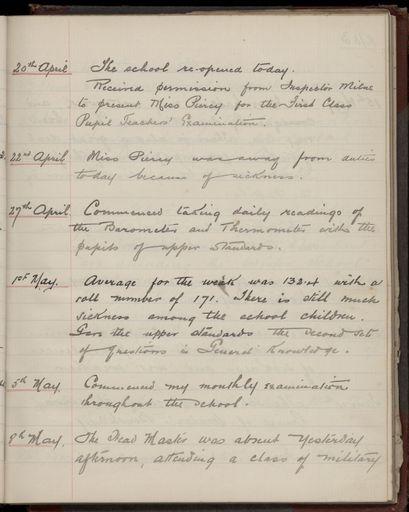 20th April The school re-opened today.
Received permission from Inspector Milne
to present Miss Piercy for the First Class
Pupil Teachers' Examination.
22nd April Miss Piercy was away from duties
today because of sickness.
27th April Commenced taking daily readings of
the Barometer and Thermometer with the
pupils of upper standards.
1st May. Average for the week was 132.4 with a
roll number of 171. There is still much
sickness among the school children.
Gave the upper standards the second set
of questions in General Knowledge.
5th May. Commenced my monthly examination
throughout the school.
9th May. The Head Master was absent yesterday
afternoon, attending a class of military